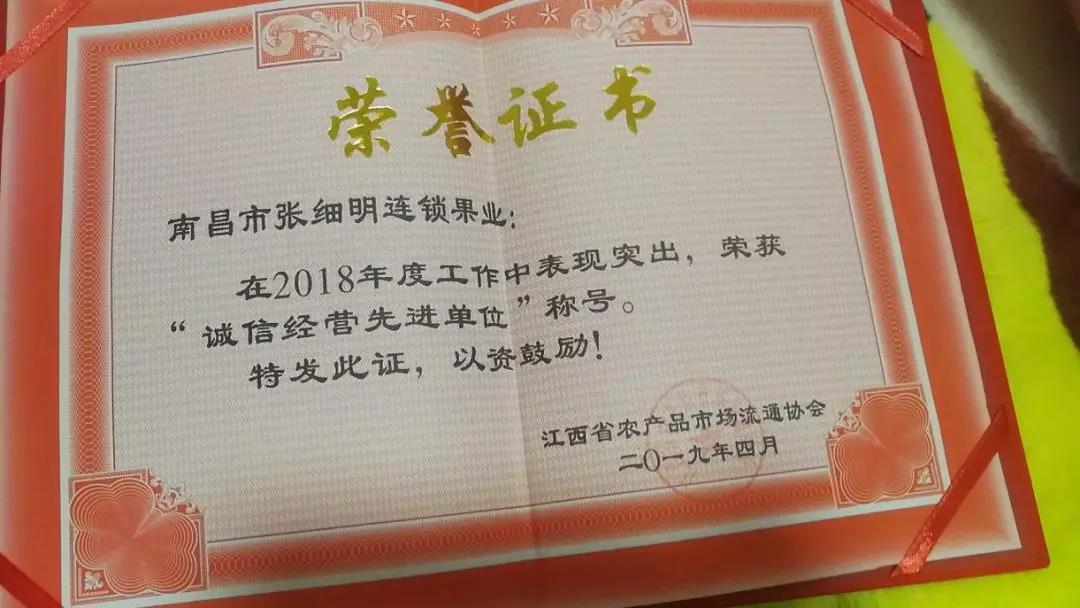 荣誉证书
南昌市张细明连锁果业：
在2018年度工作中表现突出，荣获
“诚信经营先进单位”称号。
特发此证，以资鼓励！
江西省农产品市场流通协会
二〇一九年四月